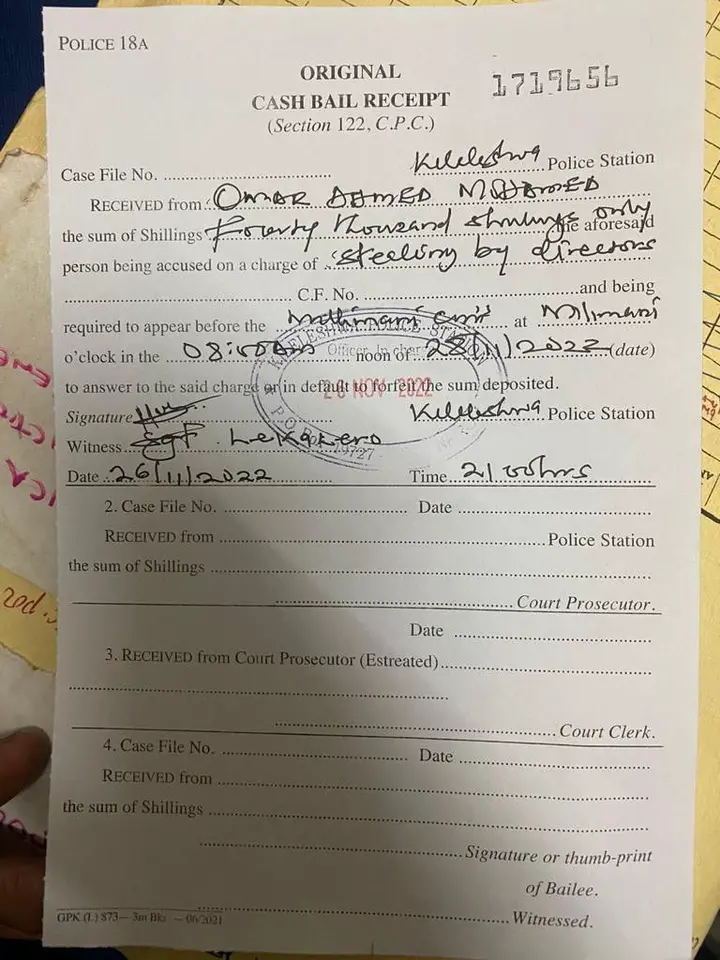 POLICE 18A
ORIGINAL
1719656
CASH BAIL RECEIPT
(Section 122, C.P.C.)
Case File No. .......... Kileleshwa Police Station
RECEIVED from OMAR AHMED MOHAMED
the sum of Shillings Fourty thousand shillings only the aforesaid
person being accused on a charge of stealing by directors
.......... C.F. No. .......... and being
required to appear before the Milimani court at Milimani
o'clock in the 08:00am noon of 28/11/2022 (date)
to answer to the said charge or in default to forfeit the sum deposited.
KILELESHWA POLICE STATION
Officer In charge
26 NOV 2022
Signature .......... Kileleshwa Police Station
Witness Sgt Lekakero
Date 26/11/2022 Time 2100hrs
2. Case File No. .......... Date ..........
RECEIVED from .......... Police Station
the sum of Shillings ..........
.......... Court Prosecutor.
Date ..........
3. RECEIVED from Court Prosecutor (Estreated) ..........
.......... Court Clerk.
4. Case File No. .......... Date ..........
RECEIVED from ..........
the sum of Shillings ..........
.......... Signature or thumb-print
of Bailee.
GPK (L) 873— 3m Bks — 06/2021
.......... Witnessed.